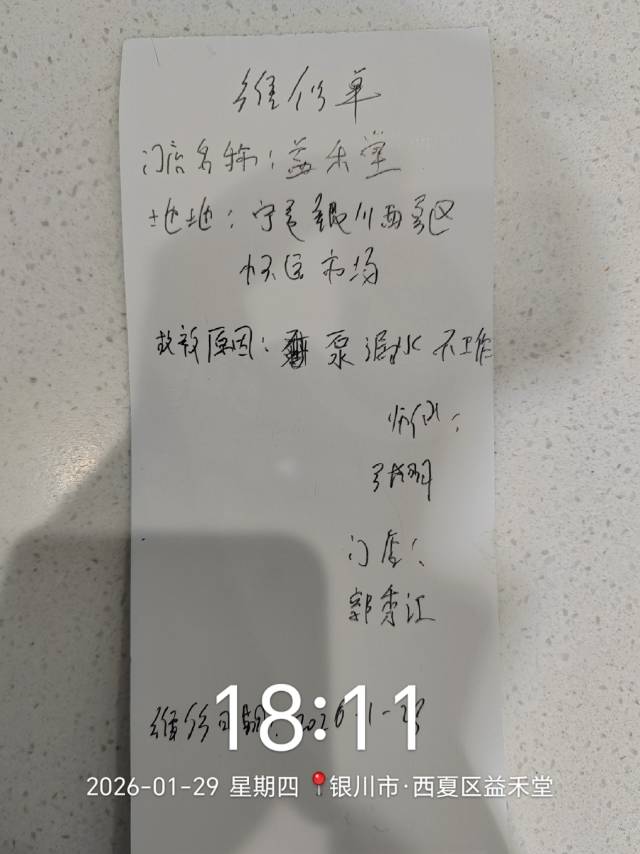 维修单
门店名称:益禾堂
地址:宁夏银川西夏区
怀远市场
故被原因: 泵漏水不工作
师傅:
门店:
郭秀江
维修日期:2026-1-29
18:11
2026-01-29 星期四 银川市·西夏区益禾堂